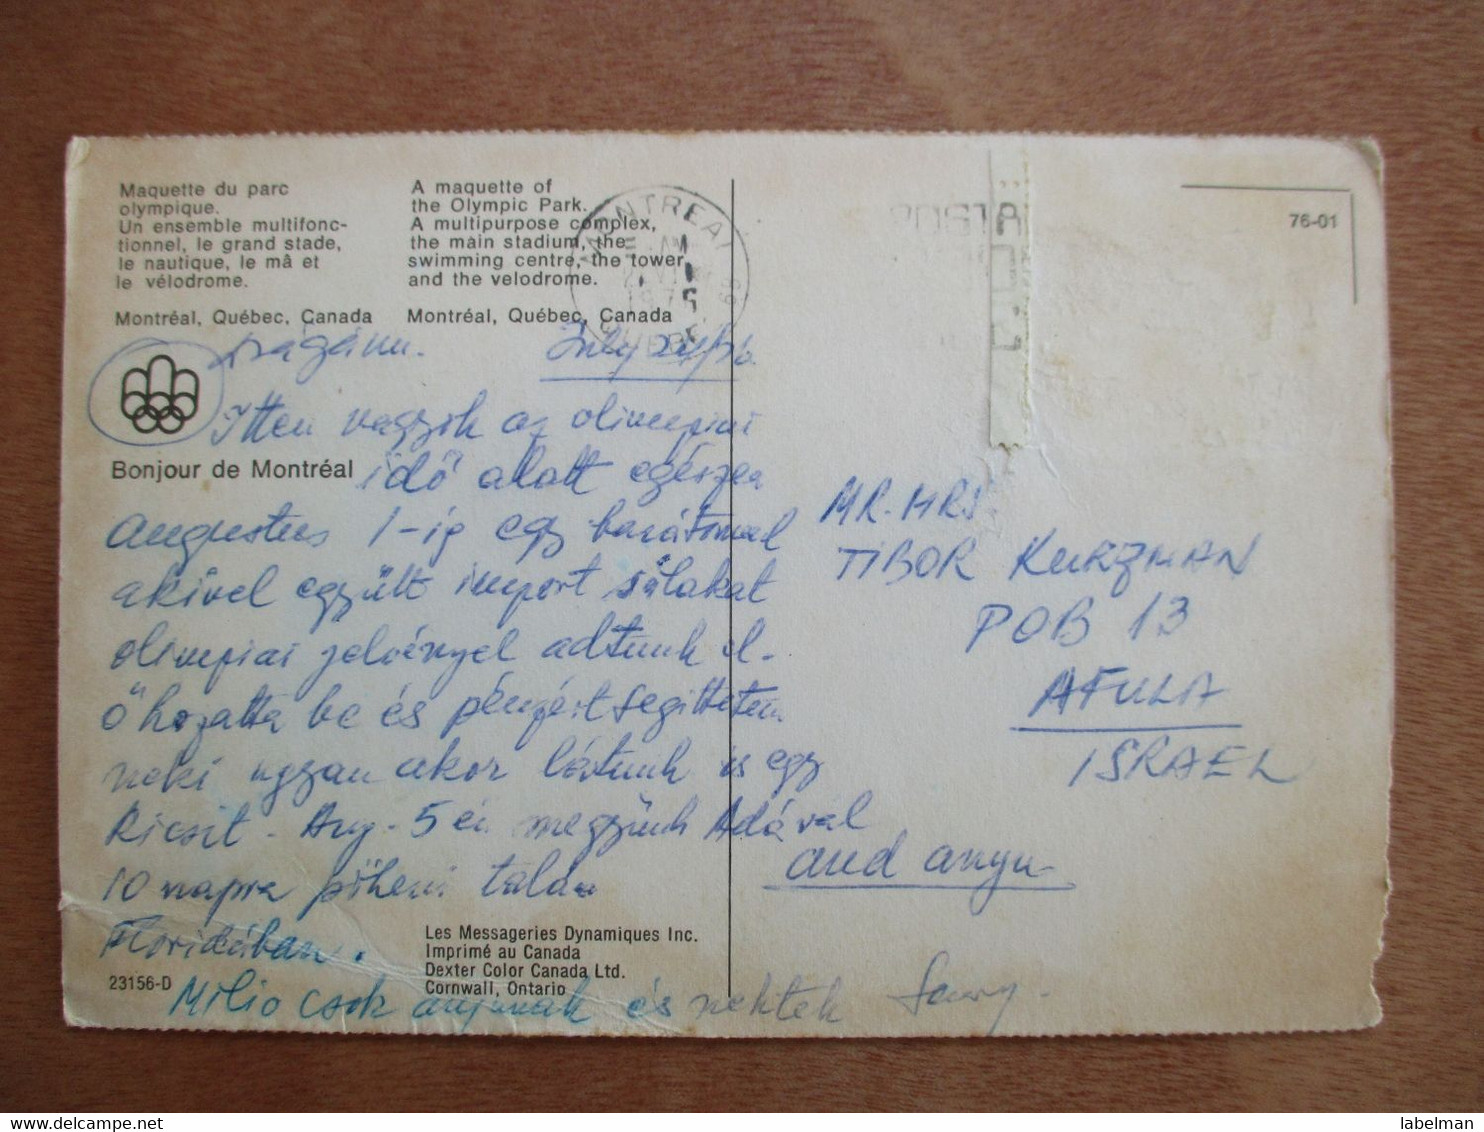 Maquette du parc
olympique.
Un ensemble multifonc-
tionnel, le grand stade,
le nautique, le mâ et
le vélodrome.
Montréal, Québec, Canada
A maquette of
the Olympic Park.
A multipurpose complex,
the main stadium, the
swimming centre, the tower
and the velodrome.
Montréal, Québec, Canada
MONTREAL
AM
197
POSTA
76-01
Bonjour de Montréal
Drágáim. July
Itten vagyok az olimpiai
idő alatt egészen
augustus 1-ig egy barátomal
akivel együtt import sálakat
olimpiai jelvényel adtunk el-
ő hozatta be és pénzért segitettem
neki ugyan akor látunk is egy
kicsit - Aug - 5 én megyünk Adával
10 napra piheni talán
Floridában.
Milio csok anyunak és nektek
MR. MRS.
TIBOR KURZMAN
POB 13
AFULA
ISRAEL
and anyu-
Les Messageries Dynamiques Inc.
Imprimé au Canada
Dexter Color Canada Ltd.
Cornwall, Ontario
23156-D
labelman
www.delcampe.net